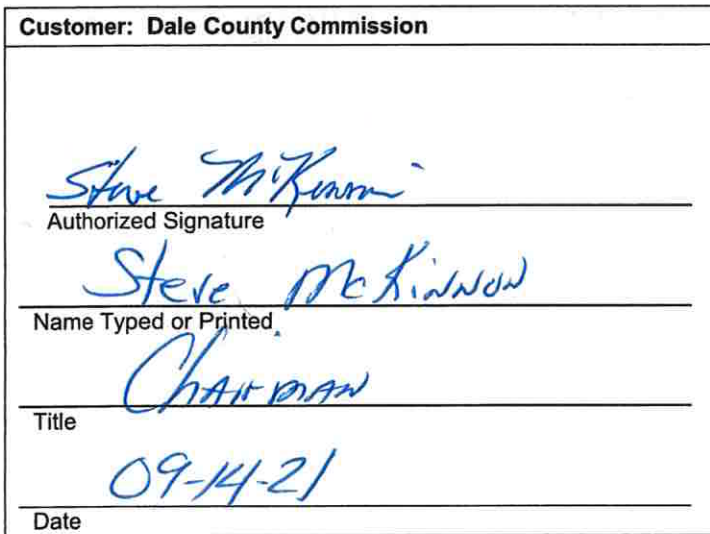 Customer: Dale County Commission
Steve McKinnon
Authorized Signature
Steve McKinnon
Name Typed or Printed
Chairman
Title
09-14-21
Date